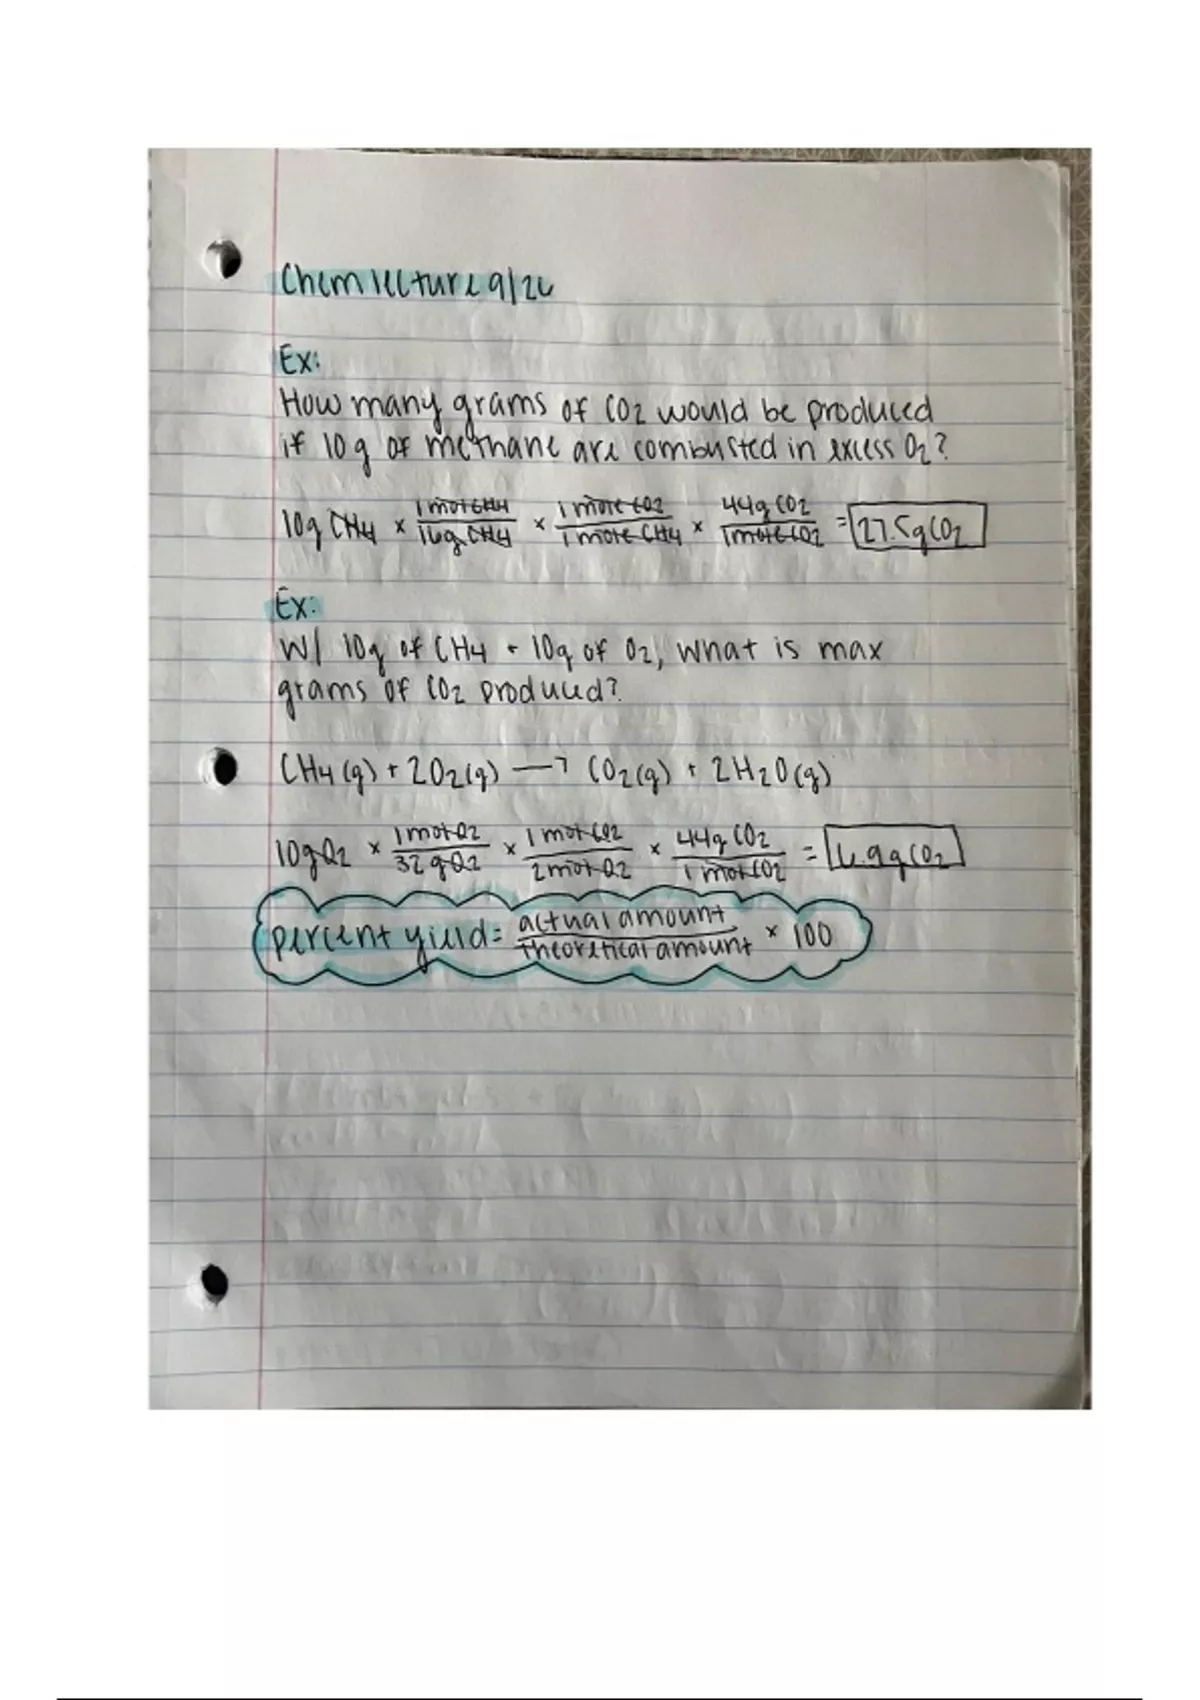 Chem lecture 9/26
Ex:
How many grams of CO2 would be produced
if 10g of methane are combusted in excess O2?
10g CH4 × 1 mol CH4 / 16g CH4 × 1 mole CO2 / 1 mole CH4 × 44g CO2 / 1 mole CO2 = 27.5g CO2
Ex:
W/ 10g of CH4 + 10g of O2, what is max
grams of CO2 produced?
CH4(g) + 2O2(g) → CO2(g) + 2H2O(g)
10g O2 × 1 mol O2 / 32 g O2 × 1 mol CO2 / 2 mol O2 × 44g CO2 / 1 mol CO2 = 6.9g CO2
percent yield = actual amount / theoretical amount × 100